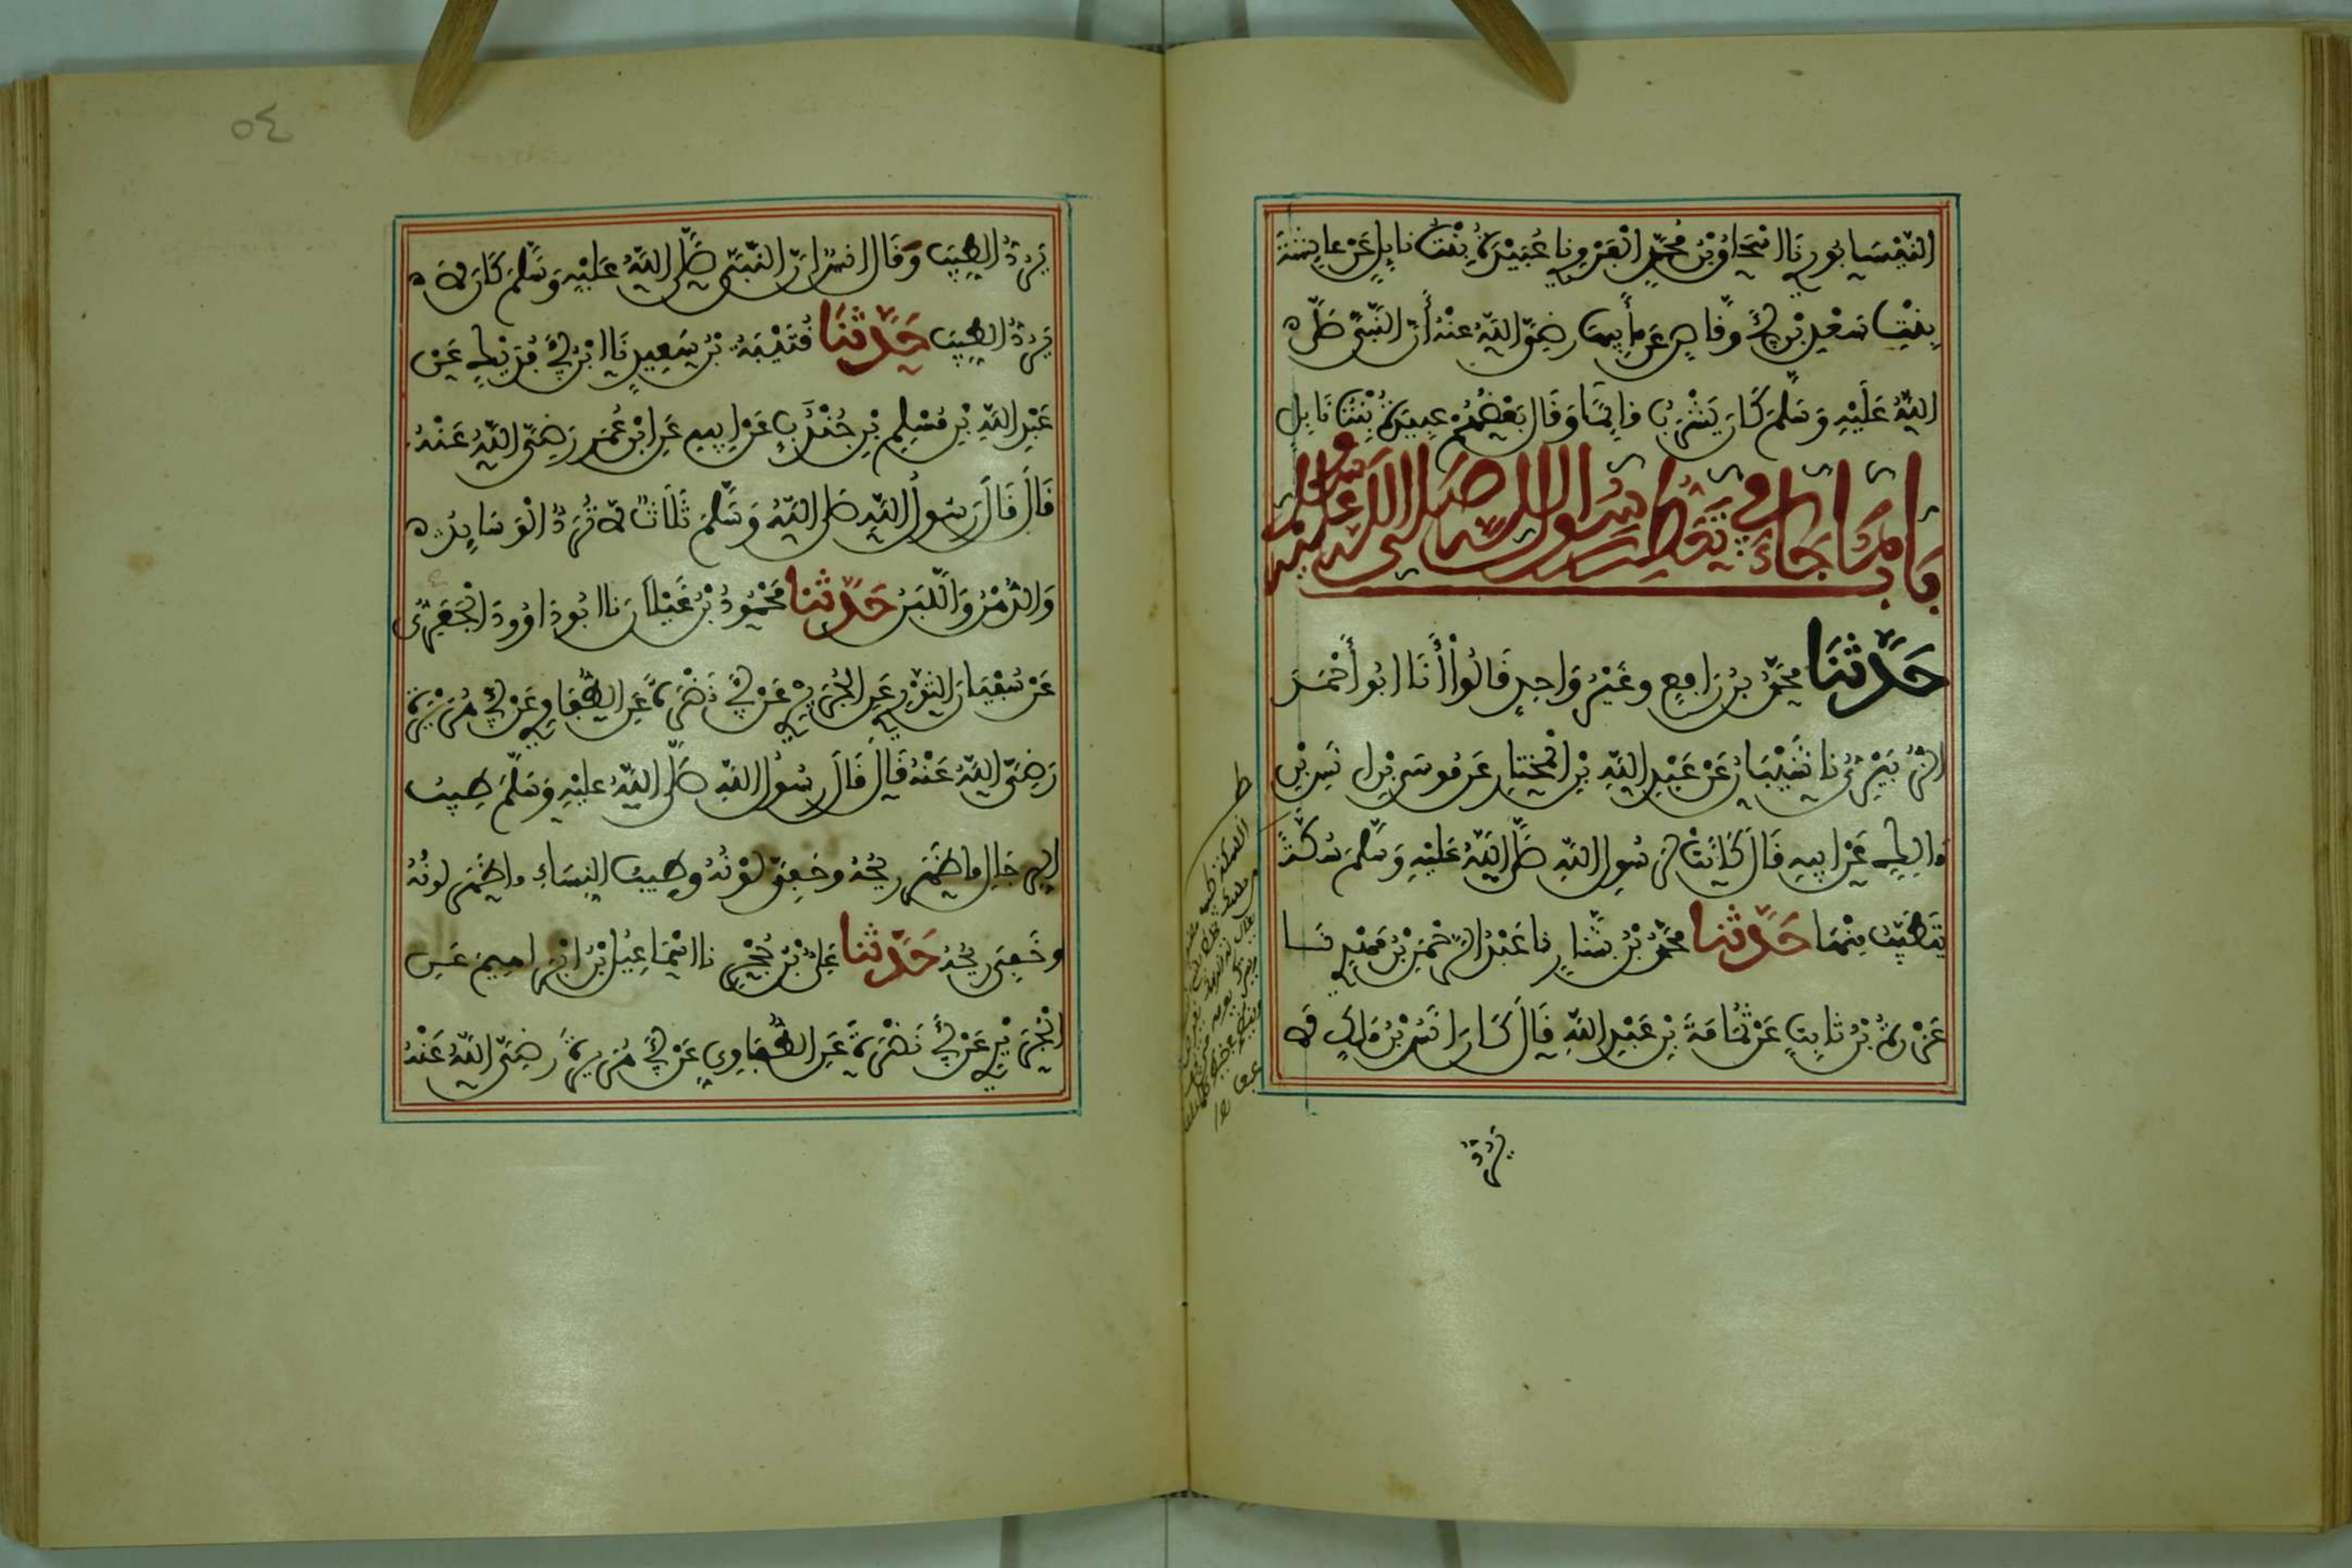 النَّيْسَابُورِي نَا اسْحَاقُ بْنُ مُحَمَّدٍ الْفَرْوِي نا عُبَيْدَةُ بِنْتُ نابِلٍ عَنْ عايِشَةَ
بِنْتِ سَعْدِ بْنِ أَبِي وَقَّاصٍ عَنْ أَبِيهَا رضِيَ اللَّهُ عَنْهُ أَنَّ النَّبِيَّ صَلَّى
اللَّهُ عَلَيْهِ وَسَلَّمَ كَانَ يَشْرَبُ قَايِمًا وَقَالَ بَعْضُهُمْ عبيدَةُ بِنْتُ نَابِلٍ
بَابُ مَا جَاءَ فِي تَعَطُّرِ رَسُولِ اللهِ صَلَّى اللهُ عَلَيْهِ وَسَلَّمَ
حَدَّثَنَا مُحَمَّدُ بْنُ رَافِعٍ وغَيْرُ وَاحِدٍ قَالُواْ أَنَا ابُو أَحْمَدَ
الزُّبَيْرِيُّ نا شَيْبَانُ عَنْ عَبْدِ اللَّهِ بْنِ الْمُختارِ عَن مُوسَى بْنِ انَسِ بْنِ
مَالِكٍ عَنْ ابِيهِ قَالَ كَانَتْ لِرَسُولِ اللَّهِ صَلَّى اللَّهُ عَلَيْهِ وَسَلَّمَ سُكَّةٌ
يَتَطَيَّبُ مِنْهَا حَدَّثَنَا مُحَمَّدُ بْنُ بَشَّارٍ نا عَبْدُ الرَّحْمَنِ بْنُ مَهْدِي نَا
عَزْرَةُ بْنُ ثَابِتٍ عَنْ ثُمَامَةَ بْنِ عَبْدِ اللَّهِ قَالَ كَانَ انَسُ بْنُ مَالِكٍ لَا
يَرُدُّ
٥٤
يَرُدُّ الطِّيبَ وَقَالَ انَسٌ انَّ النَّبِيَّ صَلَّى اللَّهُ عَلَيْهِ وَسَلَّمَ كَانَ لَا
يَرُدُّ الطِّيبَ حَدَّثَنَا قُتَيْبَةُ بْنُ سَعِيدٍ نَا ابْنُ أَبِي فُدَيْكٍ عَنْ
عَبْدِ اللَّهِ بْنِ مُسْلِمِ بْنِ جُنْدُبٍ عَنْ ابِيهِ عَنِ ابْنِ عُمَرَ رَضِيَ اللَّهُ عَنْهُ
قَالَ قَالَ رَسُولُ اللَّهِ صَلَّى اللَّهُ وَسَلَّمَ ثَلَاثٌ لَا تُرَدُّ الْوَسَايِدُ
وَالدُّهْنُ وَاللَّبَنُ حَدَّثَنَا مَحْمُودُ بْنُ غَيْلَانَ نا ابُو دَاوُودَ الْحَفَرِيُّ
عَنْ سُفْيَانَ الثَّوْرِي عَنِ الْجُرَيْرِي عَنْ أَبِي نَضْرَةَ عَنِ الطُّفَاوِي عَنْ أَبِي هُرَيْرَةَ
رَضِيَ اللَّهُ عَنْهُ قَالَ قَالَ رسُولُ اللَّهِ صَلَّى اللَّهُ عَلَيْهِ وَسَلَّمَ طِيبُ
الرِّجَالِ مَا ظَهَرَ رِيحُهُ وخَفِيَ لَوْنُهُ وطِيبُ النِّسَاءِ ما ظَهَرَ لَونُهُ
وخَفِيَ رِيحُهُ حَدَّثَنَا عَلِيُّ بْنُ حُجْرٍ نا اسْمَاعِيلُ بْنُ ابْرَاهِيمَ عَنِ
الْجُرَيْرِي عَنْ أَبِي نَضْرَةَ عَنِ الطُّفَاوِي عَنْ أَبِي هُرَيْرَةَ رَضِيَ اللَّهُ عَنْهُ